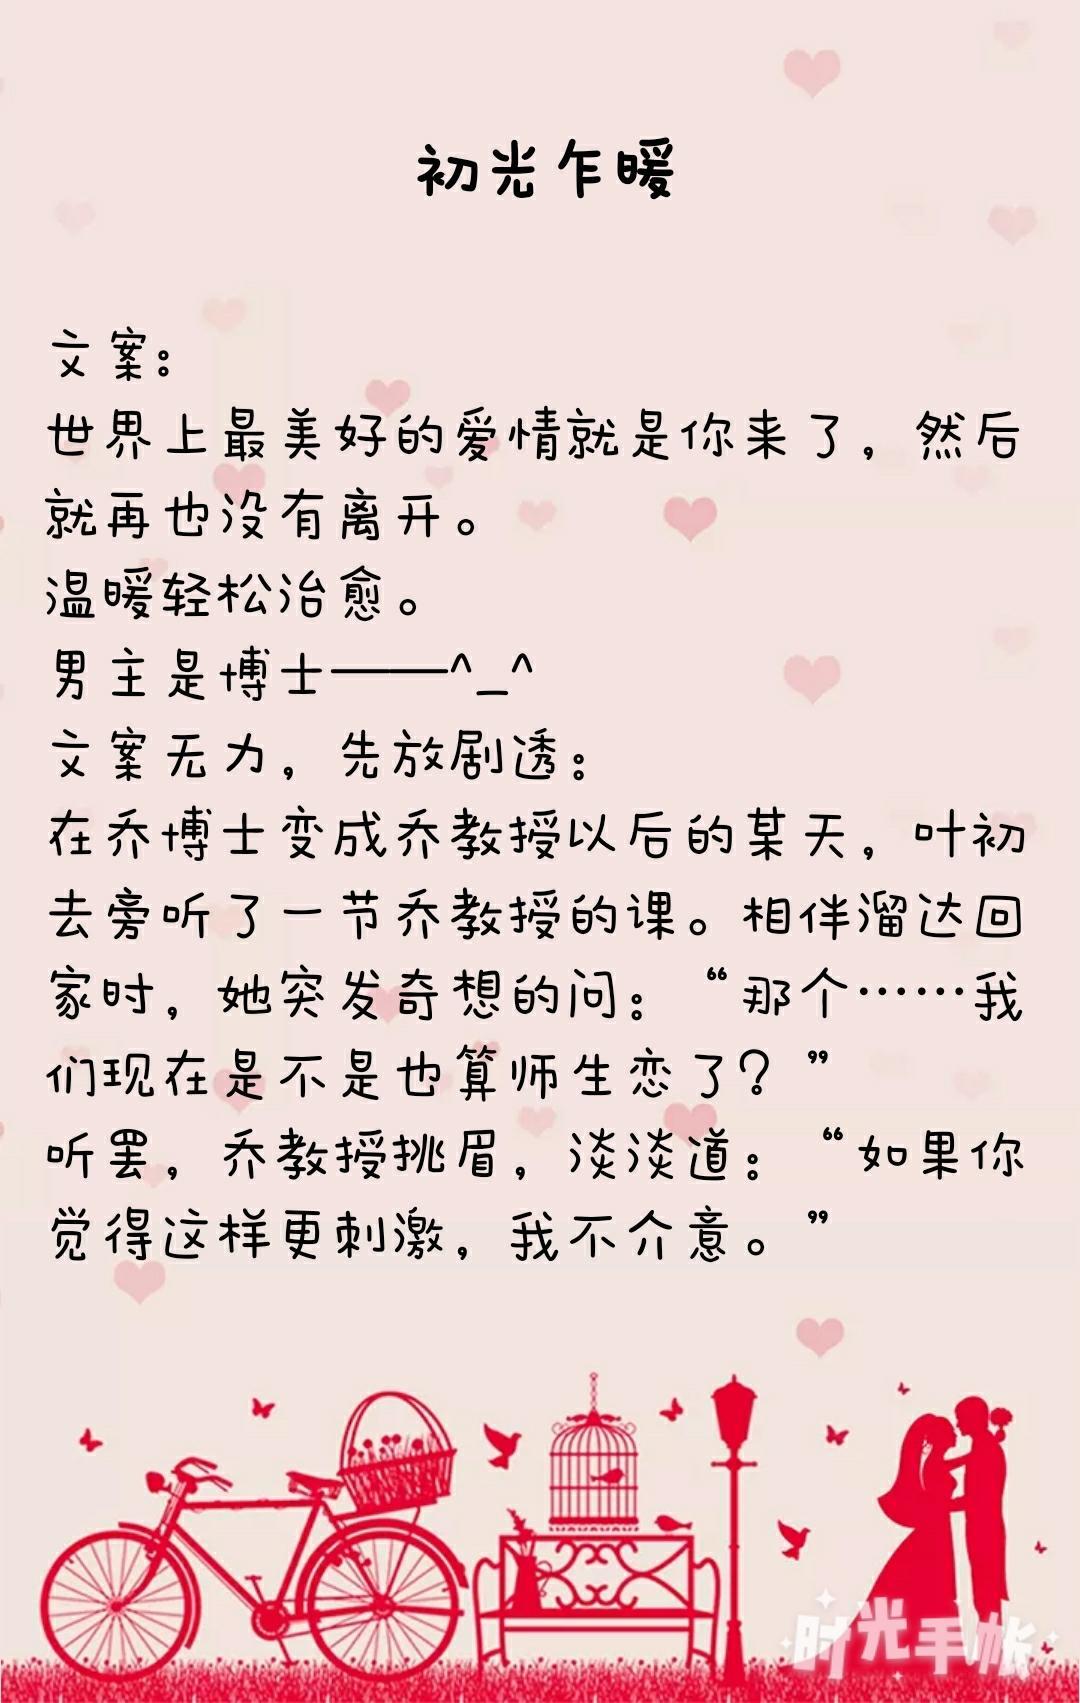 初光乍暖
文案：
世界上最美好的爱情就是你来了，然后
就再也没有离开。
温暖轻松治愈。
男主是博士——^_^
文案无力，先放剧透：
在乔博士变成乔教授以后的某天，叶初
去旁听了一节乔教授的课。相伴溜达回
家时，她突发奇想的问：“那个……我
们现在是不是也算师生恋了？”
听罢，乔教授挑眉，淡淡道：“如果你
觉得这样更刺激，我不介意。”
时光手帐